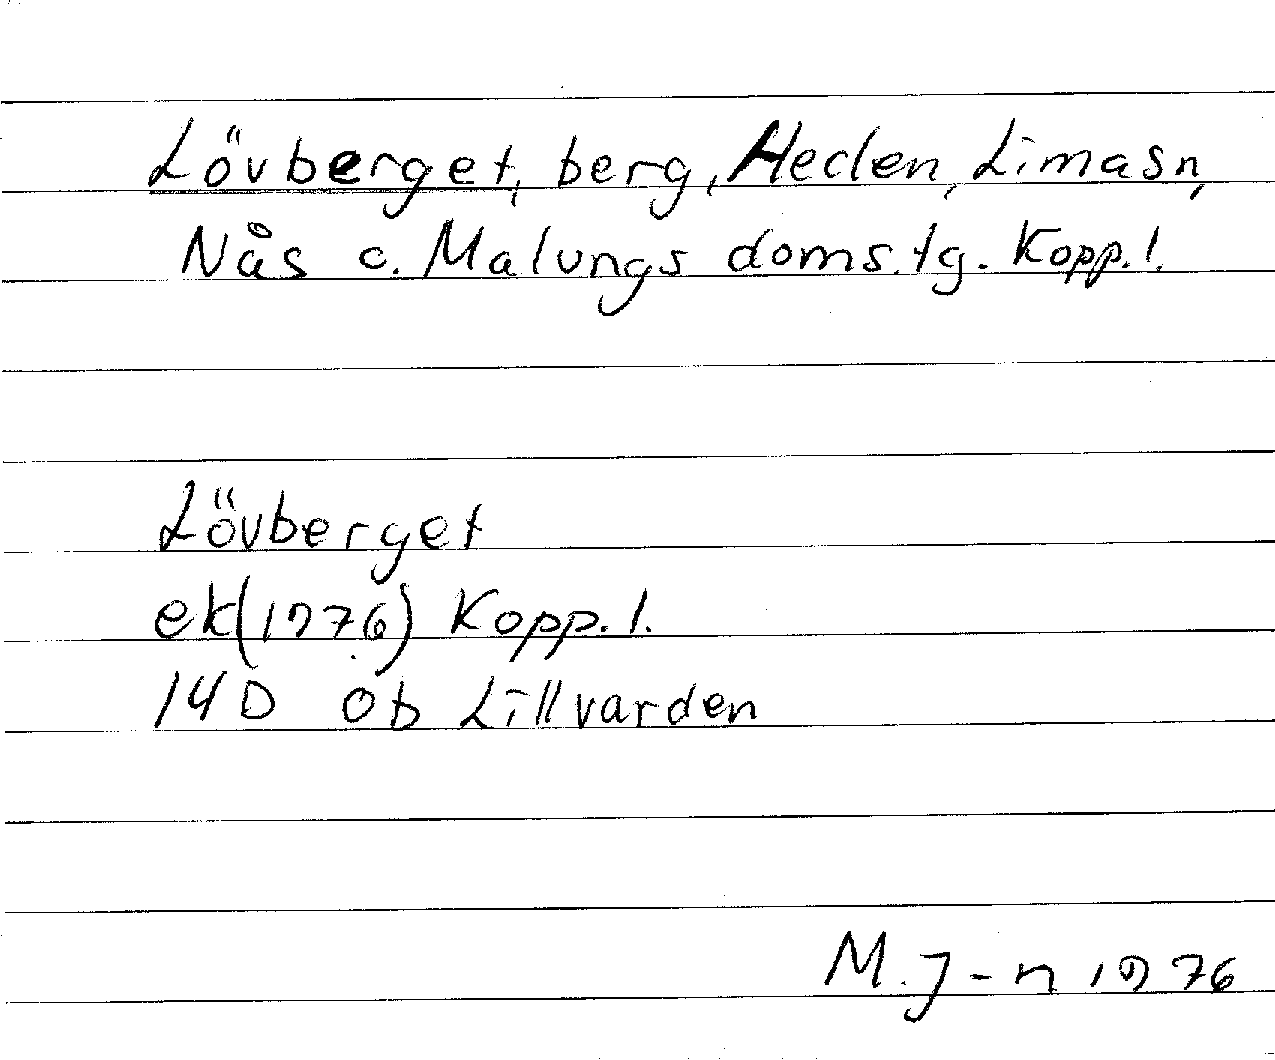 Lövberget, berg, Heden, Lima sn,
Nås o. Malungs doms.tg. Kopp.l.
Lövberget
ek(1976) Kopp.l.
14D ob Lillvarden
M.J-n 1976